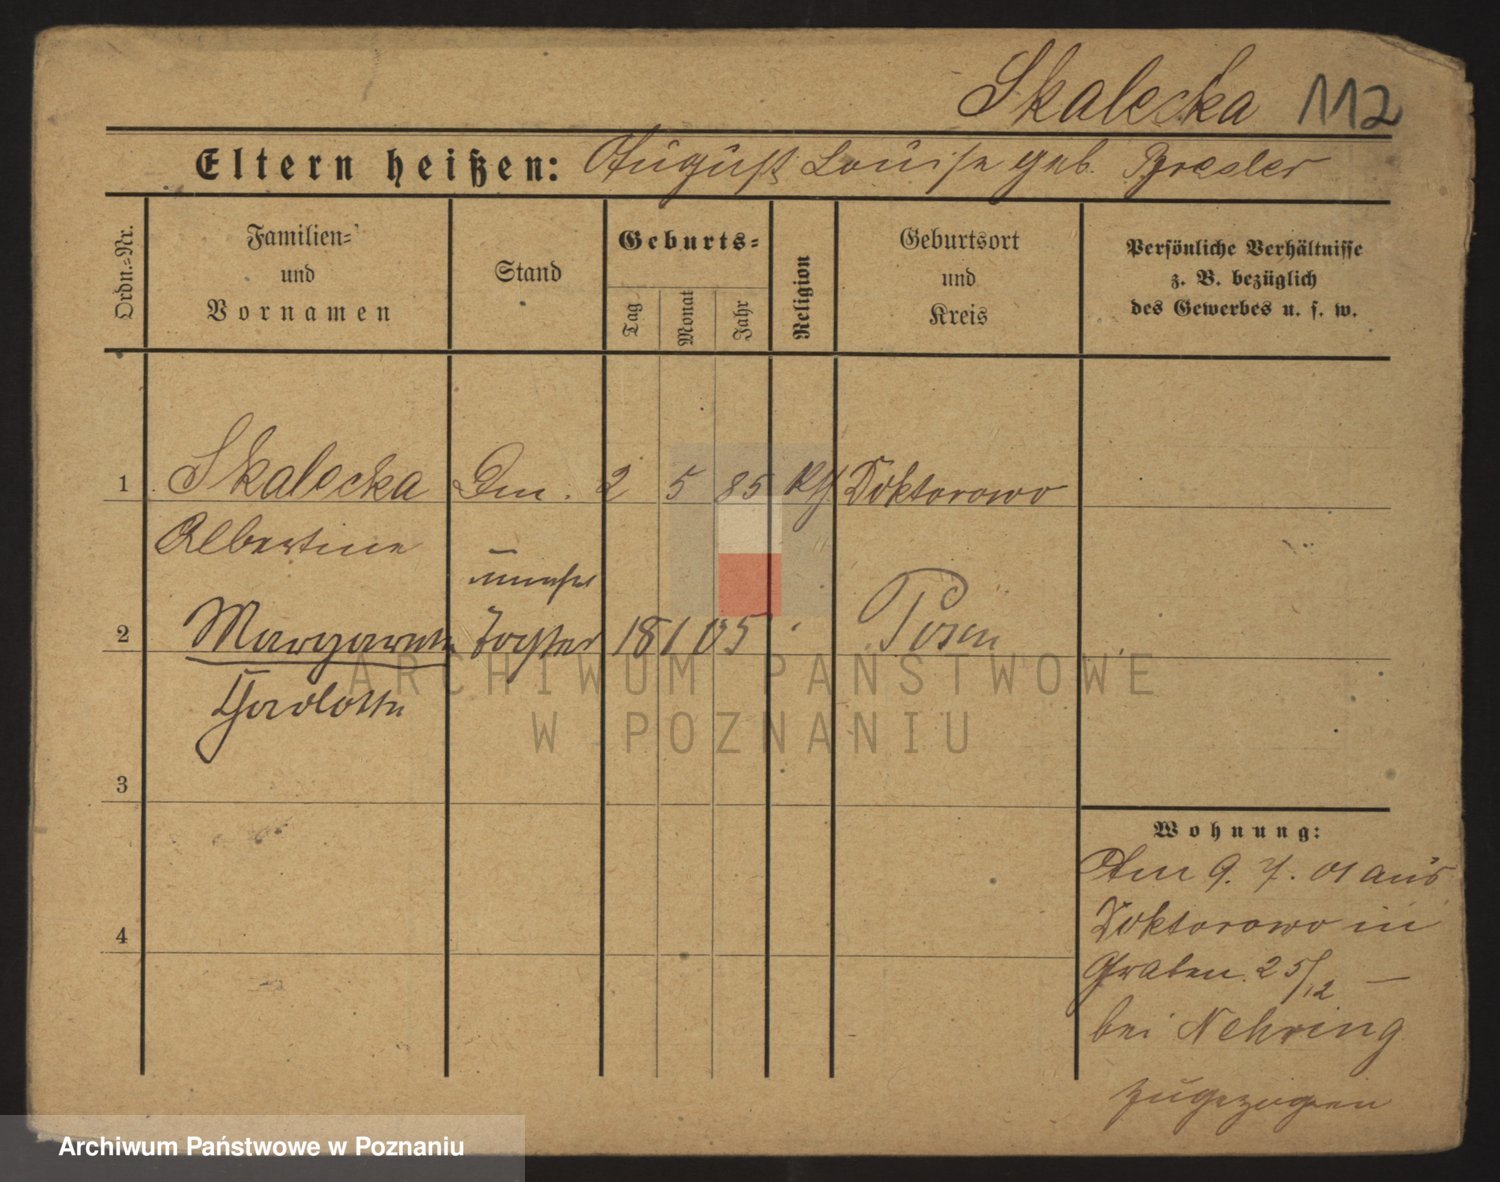 Skalecka 112
Eltern heißen: August Louise geb. Bresler
Ordn.-Nr.
Familien-
und
Vornamen
Stand
Geburts-
Tag
Monat
Jahr
Religion
Geburtsort
und
Kreis
Persönliche Verhältnisse
z. B. bezüglich
des Gewerbes u. s. w.
1 Skalecka 2 5 85 Doktorowo
Albertine
unehel
2 Margarete Tochter 18 1 05 Posen
Charlotte
3
4
Wohnung:
Am 9. 7. 01 aus
Doktorowo in
Graben 25/12 –
bei Nehring
zugezogen
ARCHIWUM PAŃSTWOWE
W POZNANIU
Archiwum Państwowe w Poznaniu